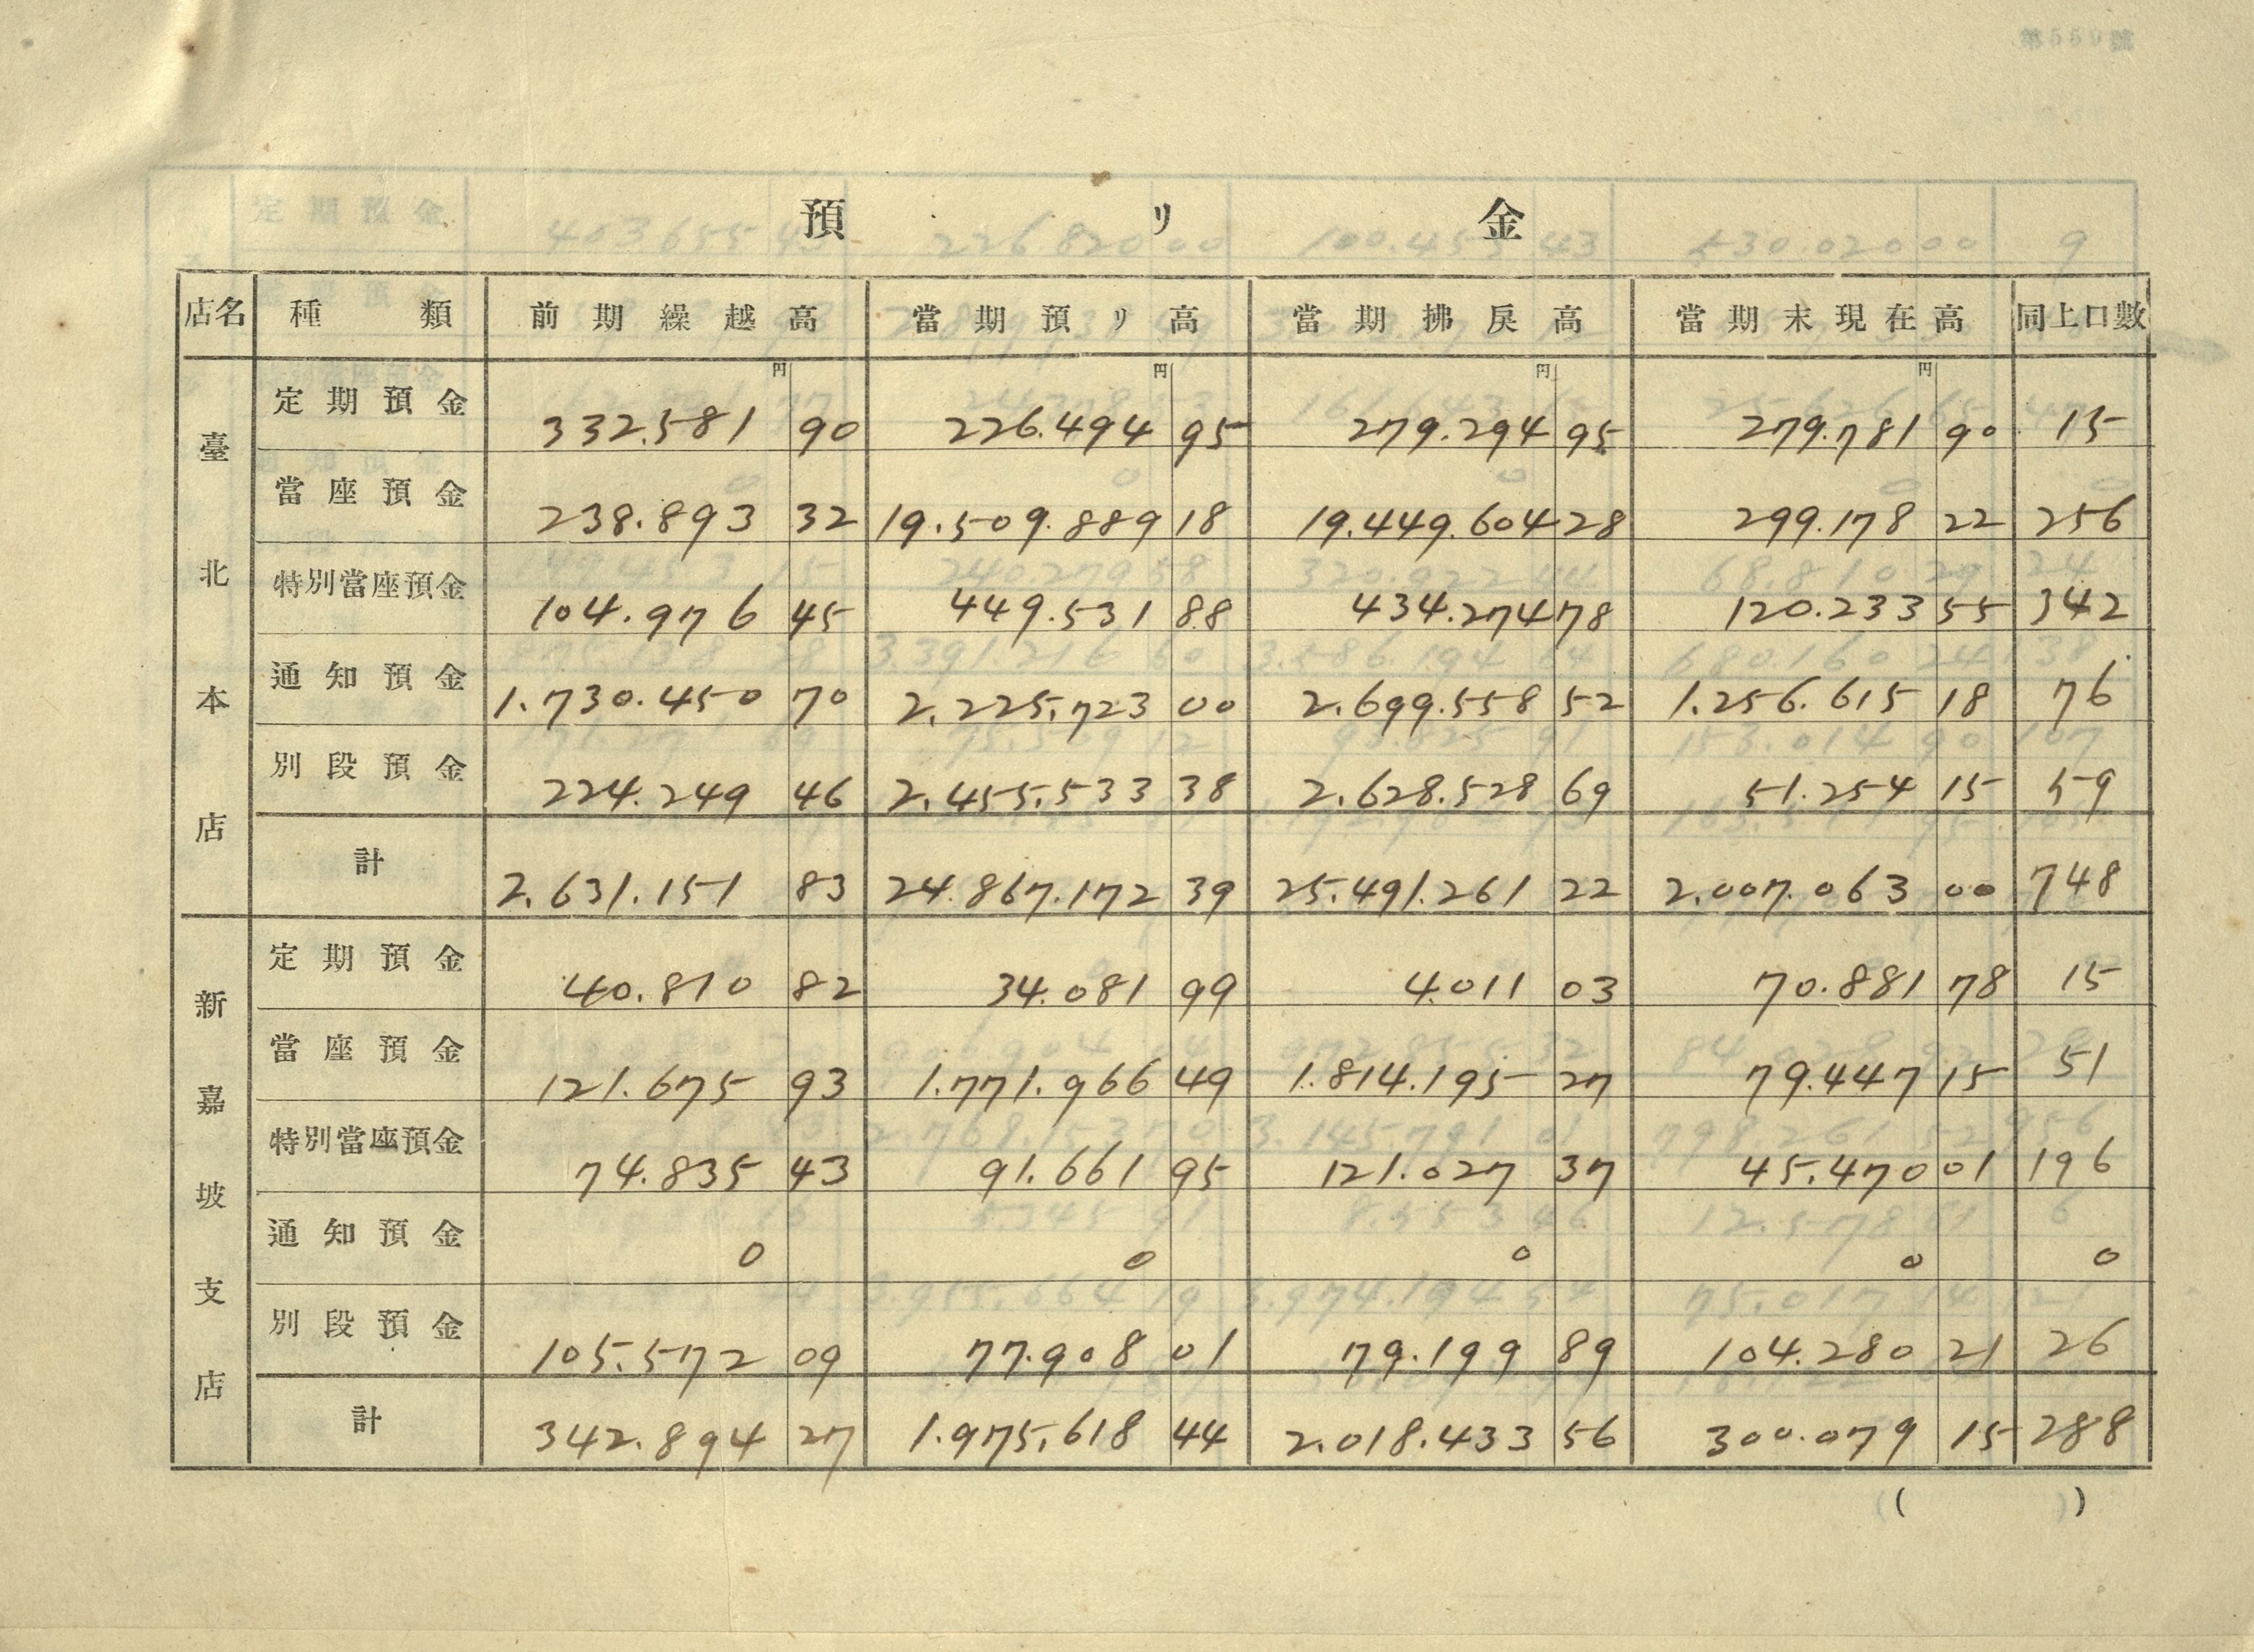 預リ金
店名 種類 前期繰越高 當期預リ高 當期拂戻高 當期末現在高 同上口數
円 円 円 円
臺北本店
定期預金 332.581 90 226.494 95 279.294 95 279.781 90 15
當座預金 238.893 32 19.509.889 18 19.449.604 28 299.178 22 256
特別當座預金 104.976 45 449.531 88 434.274 78 120.233 55 342
通知預金 1.730.450 70 2.225.723 00 2.699.558 52 1.256.615 18 76
別段預金 224.249 46 2.455.533 38 2.628.528 69 51.254 15 59
計 2.631.151 83 24.867.172 39 25.491.261 22 2.007.063 00 748
新嘉坡支店
定期預金 40.810 82 34.081 99 4.011 03 70.881 78 15
當座預金 121.675 93 1.771.966 49 1.814.195 27 79.447 15 51
特別當座預金 74.835 43 91.661 95 121.027 37 45.470 01 196
通知預金 0 0 0 0 0
別段預金 105.572 09 77.908 01 79.199 89 104.280 21 26
計 342.894 27 1.975.618 44 2.018.433 56 300.079 15 288
( )